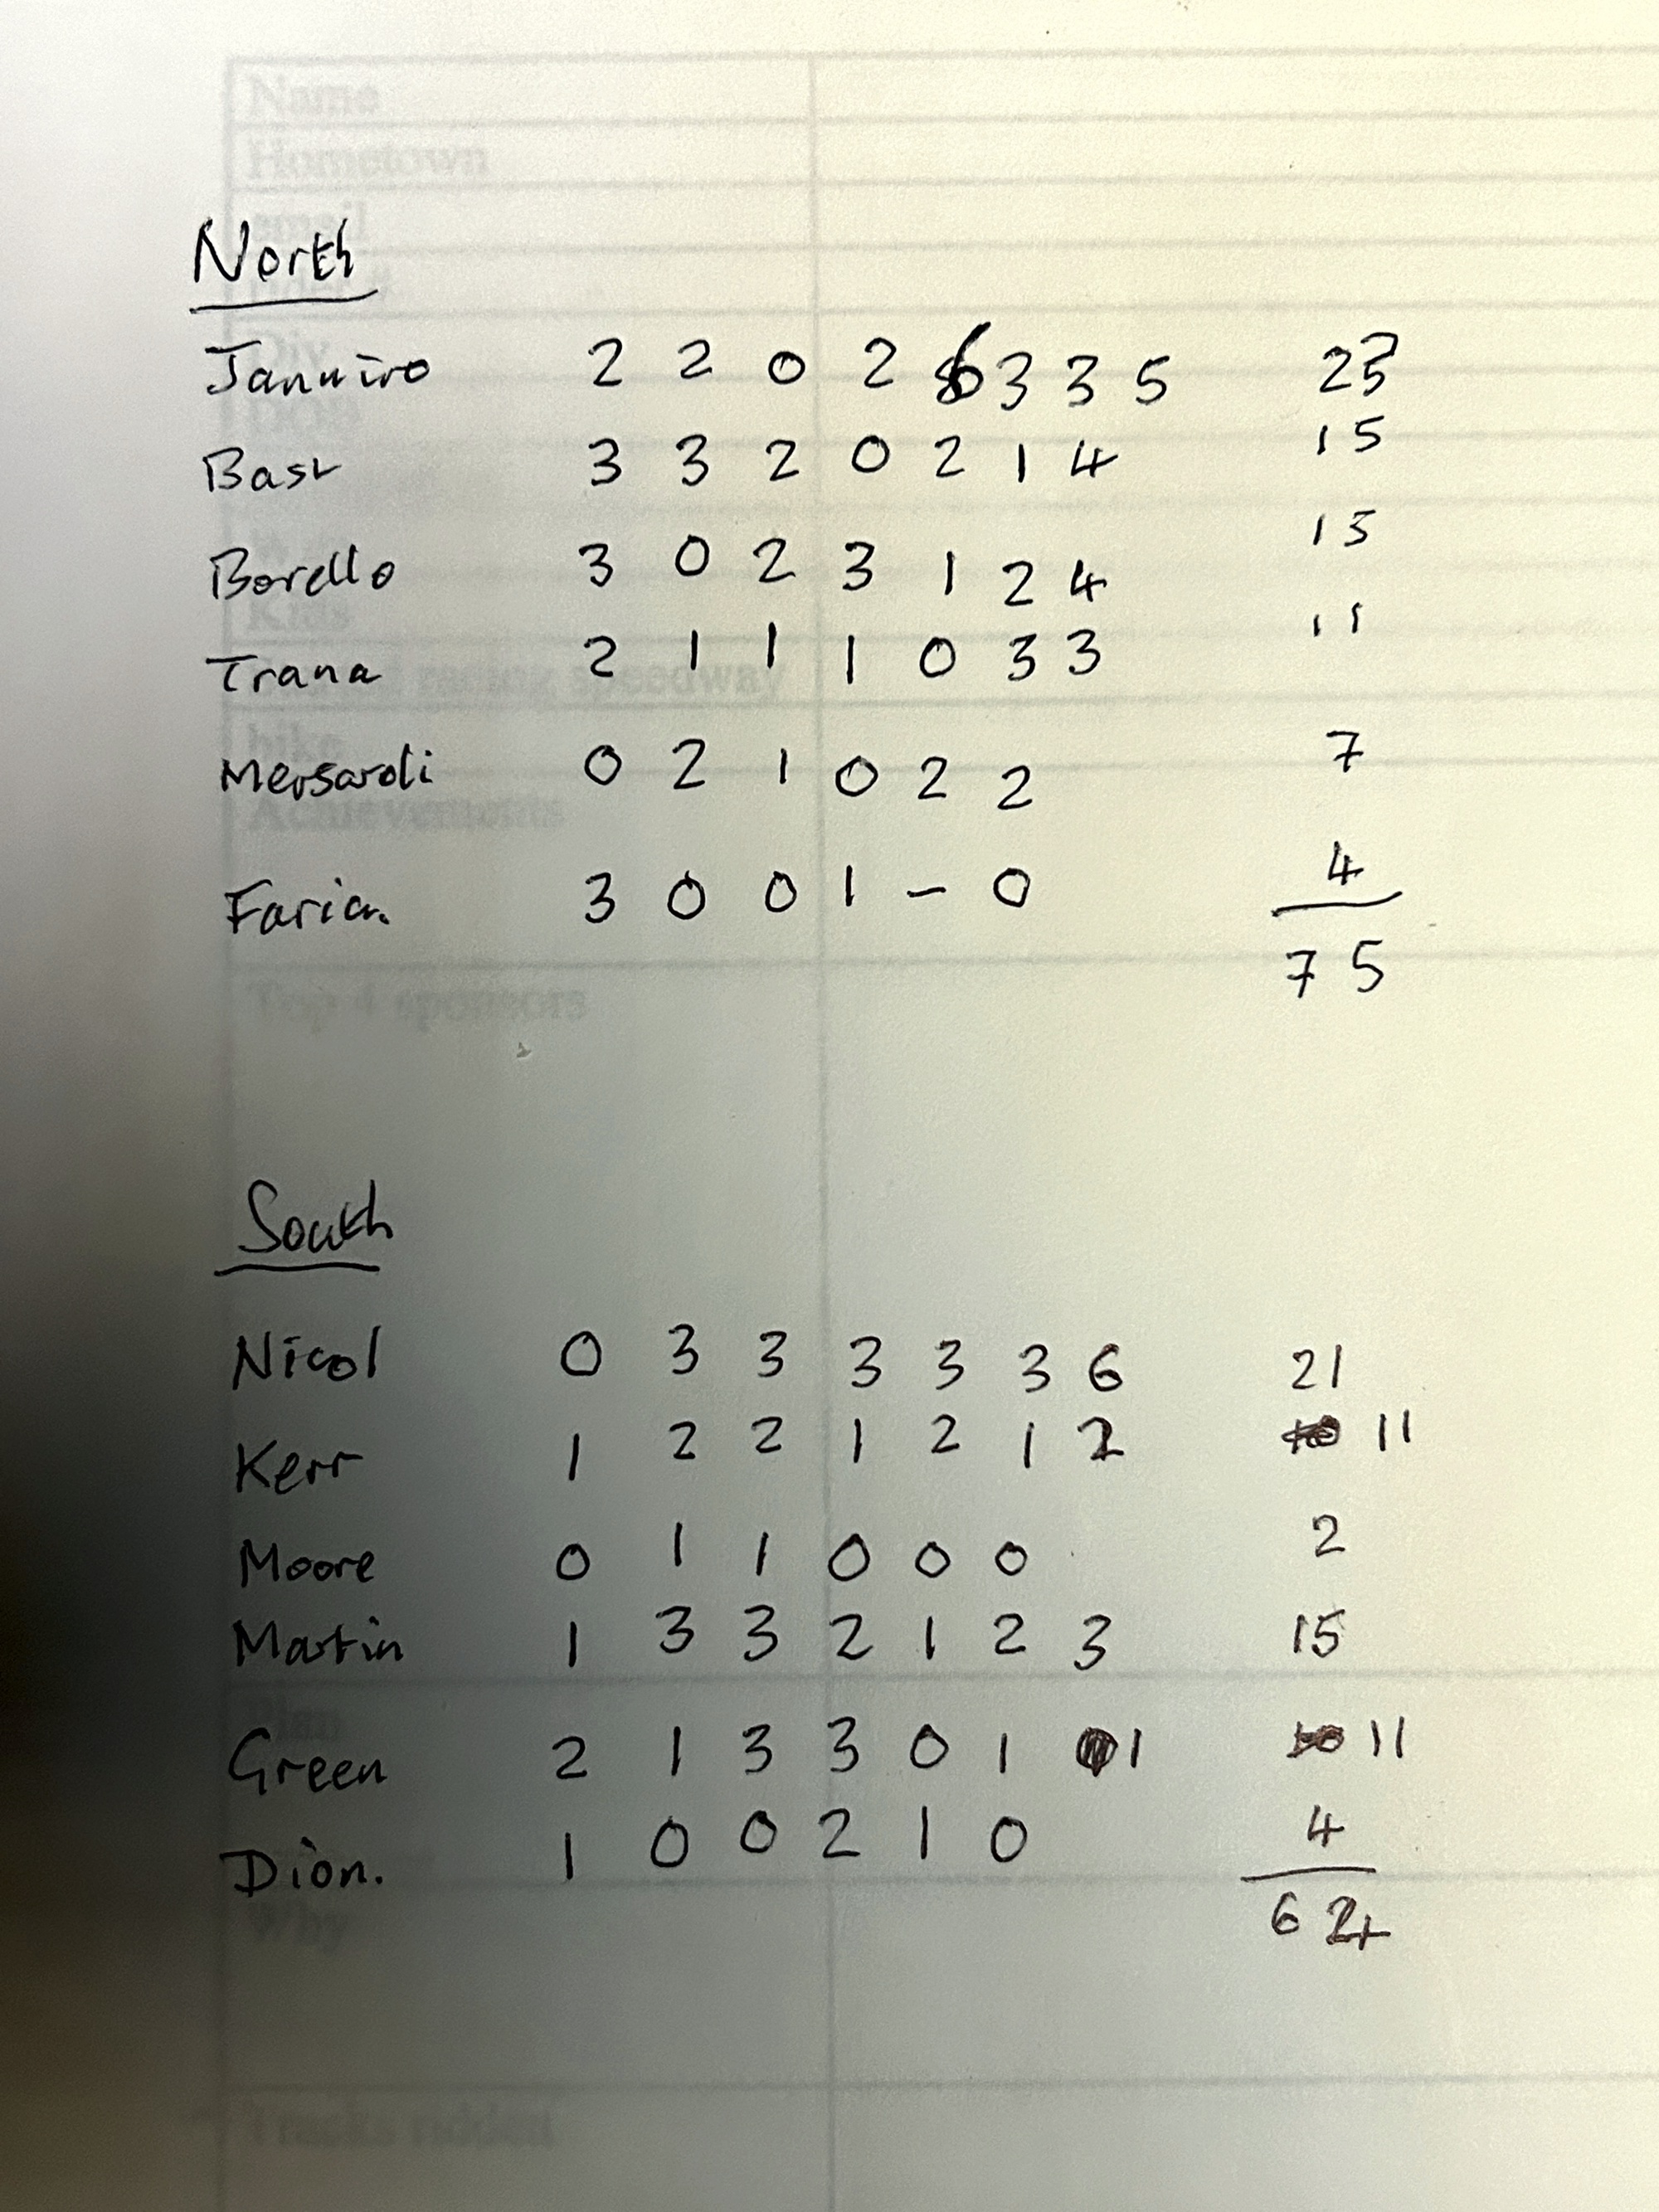 Name
Hometown
email
North
Januiro 2 2 0 2 6 3 3 5 23
Bast 3 3 2 0 2 1 4 15
Borello 3 0 2 3 1 2 4 15
Trana 2 1 1 1 0 3 3 11
racing speedway
bike
Mersaroli 0 2 1 0 2 2 7
Achievements
Faria. 3 0 0 1 – 0 4
75
Top 4 sponsors
South
Nicol 0 3 3 3 3 3 6 21
Kerr 1 2 2 1 2 1 2 11
Moore 0 1 1 0 0 0 2
Martin 1 3 3 2 1 2 3 15
Green 2 1 3 3 0 1 1 11
Dion. 1 0 0 2 1 0 4
Why
Tracks ridden